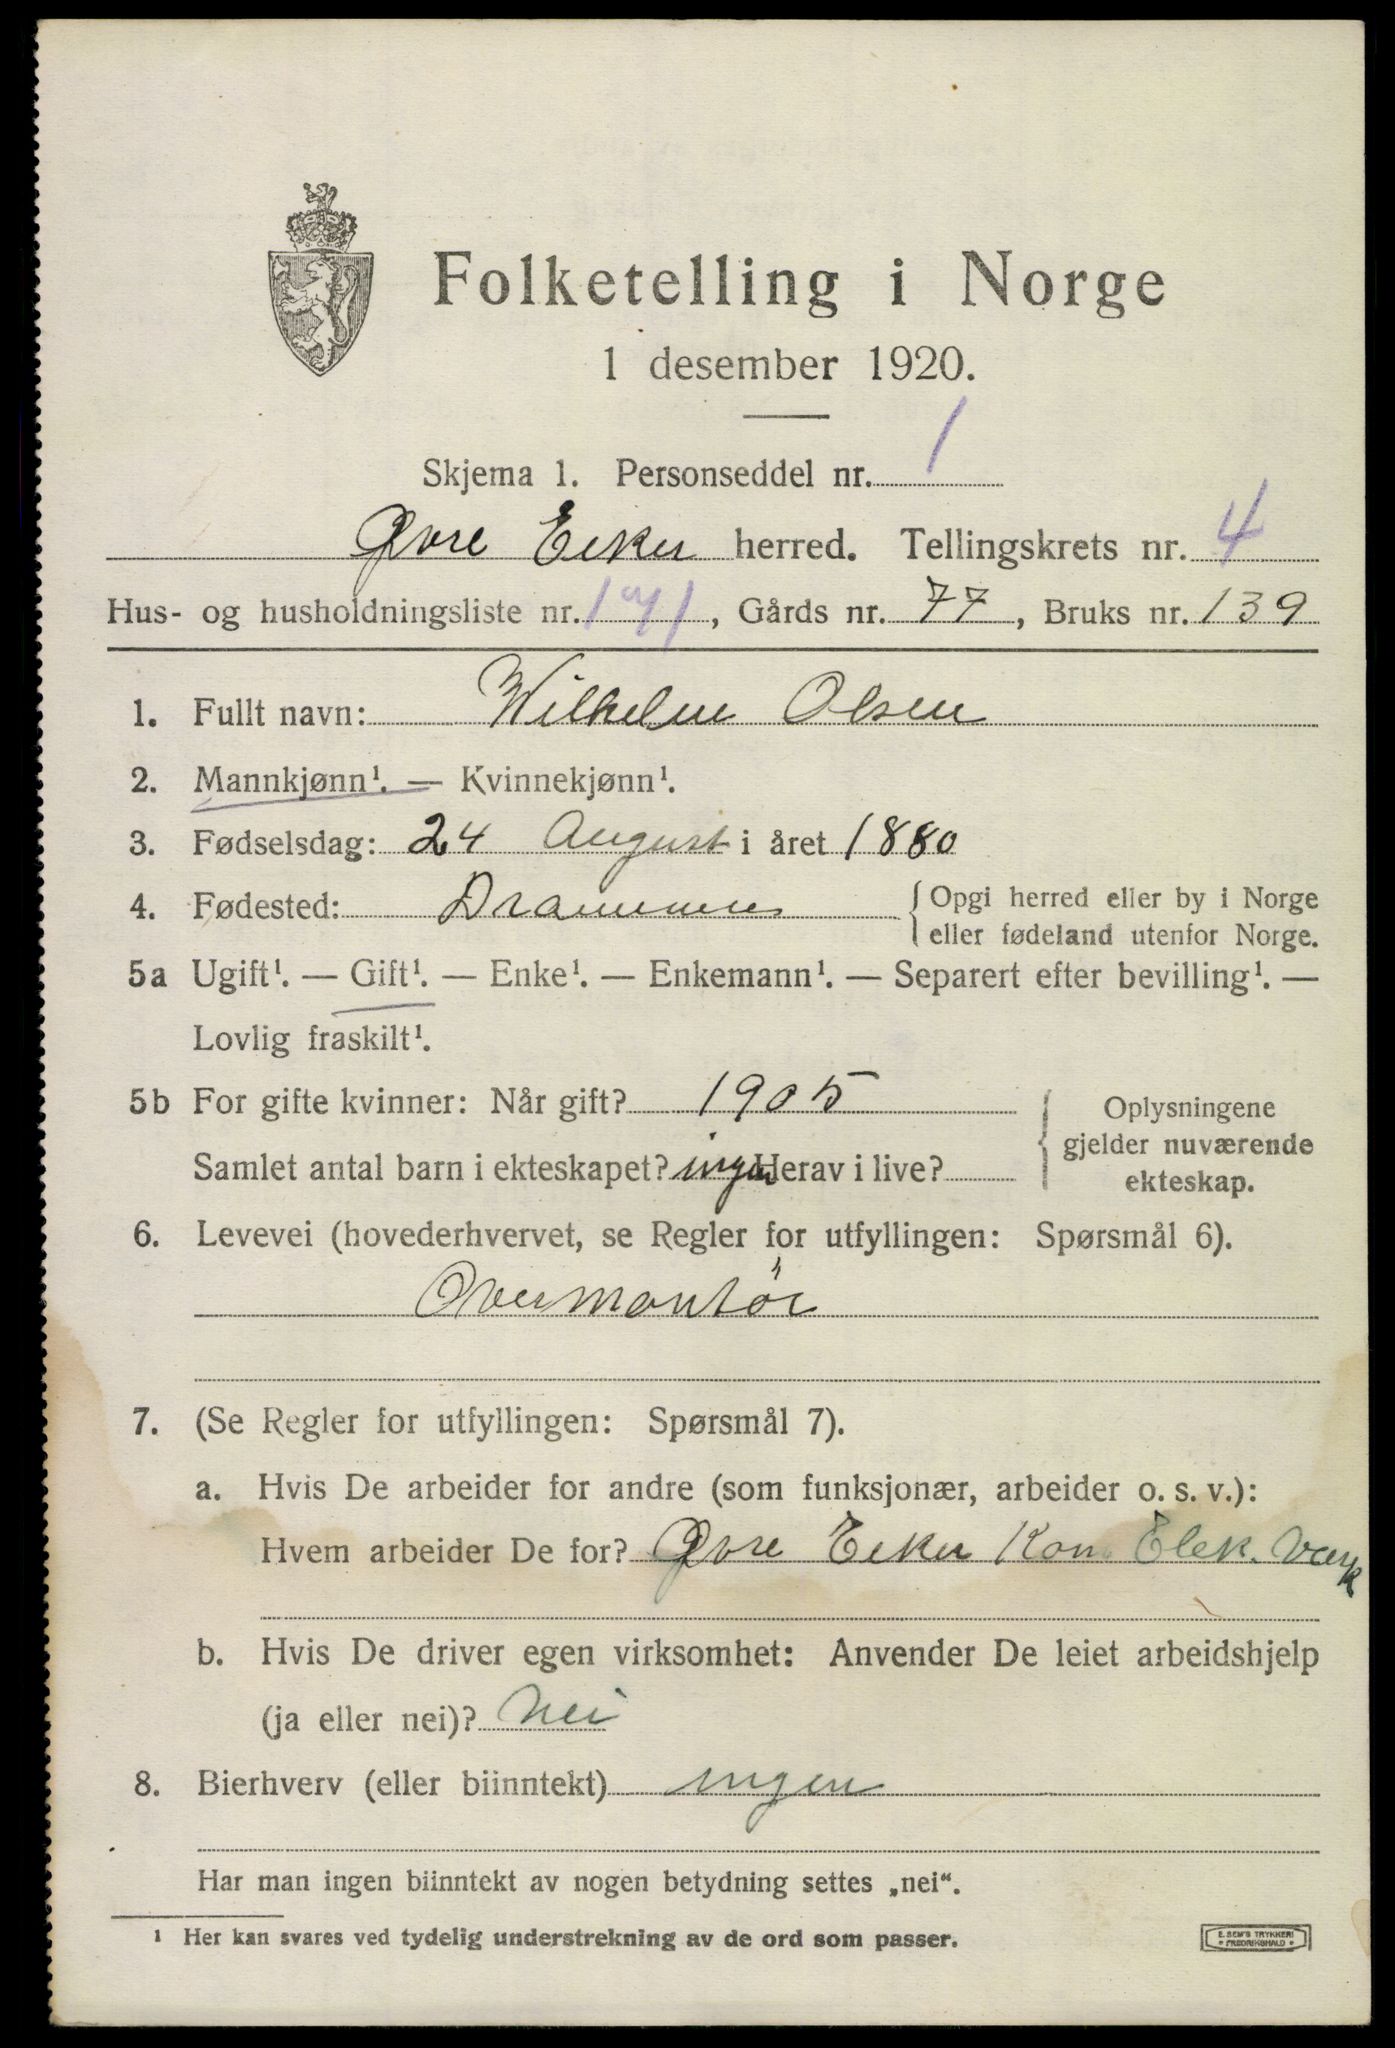 Folketelling i Norge
1 desember 1920.
Skjema 1. Personseddel nr. 1
Øvre Eeker herred. Tellingskrets nr. 4
Hus- og husholdningsliste nr. 171, Gårds nr. 77, Bruks nr. 139
1. Fullt navn: Wilhelm Olsen
2. Mannkjønn¹. — Kvinnekjønn¹.
3. Fødselsdag: 24 August i året 1880
4. Fødested: Drammen { Opgi herred eller by i Norge
eller fødeland utenfor Norge.
5a Ugift¹. — Gift¹. — Enke¹. — Enkemann¹. — Separert efter bevilling¹. —
Lovlig fraskilt¹.
5b For gifte kvinner: Når gift? 1905
Samlet antal barn i ekteskapet? ingen Herav i live?
{ Oplysningene
gjelder nuværende
ekteskap.
6. Levevei (hovederhvervet, se Regler for utfyllingen: Spørsmål 6).
Overmontör
7. (Se Regler for utfyllingen: Spørsmål 7).
a. Hvis De arbeider for andre (som funksjonær, arbeider o. s. v.):
Hvem arbeider De for? Øvre Eeker Kom. Elek. Værk
b. Hvis De driver egen virksomhet: Anvender De leiet arbeidshjelp
(ja eller nei)? Nei
8. Bierhverv (eller biinntekt) ingen
Har man ingen biinntekt av nogen betydning settes „nei“.
¹ Her kan svares ved tydelig understrekning av de ord som passer.
E. SEM'S TRYKKERI
• FREDRIKSHALD •